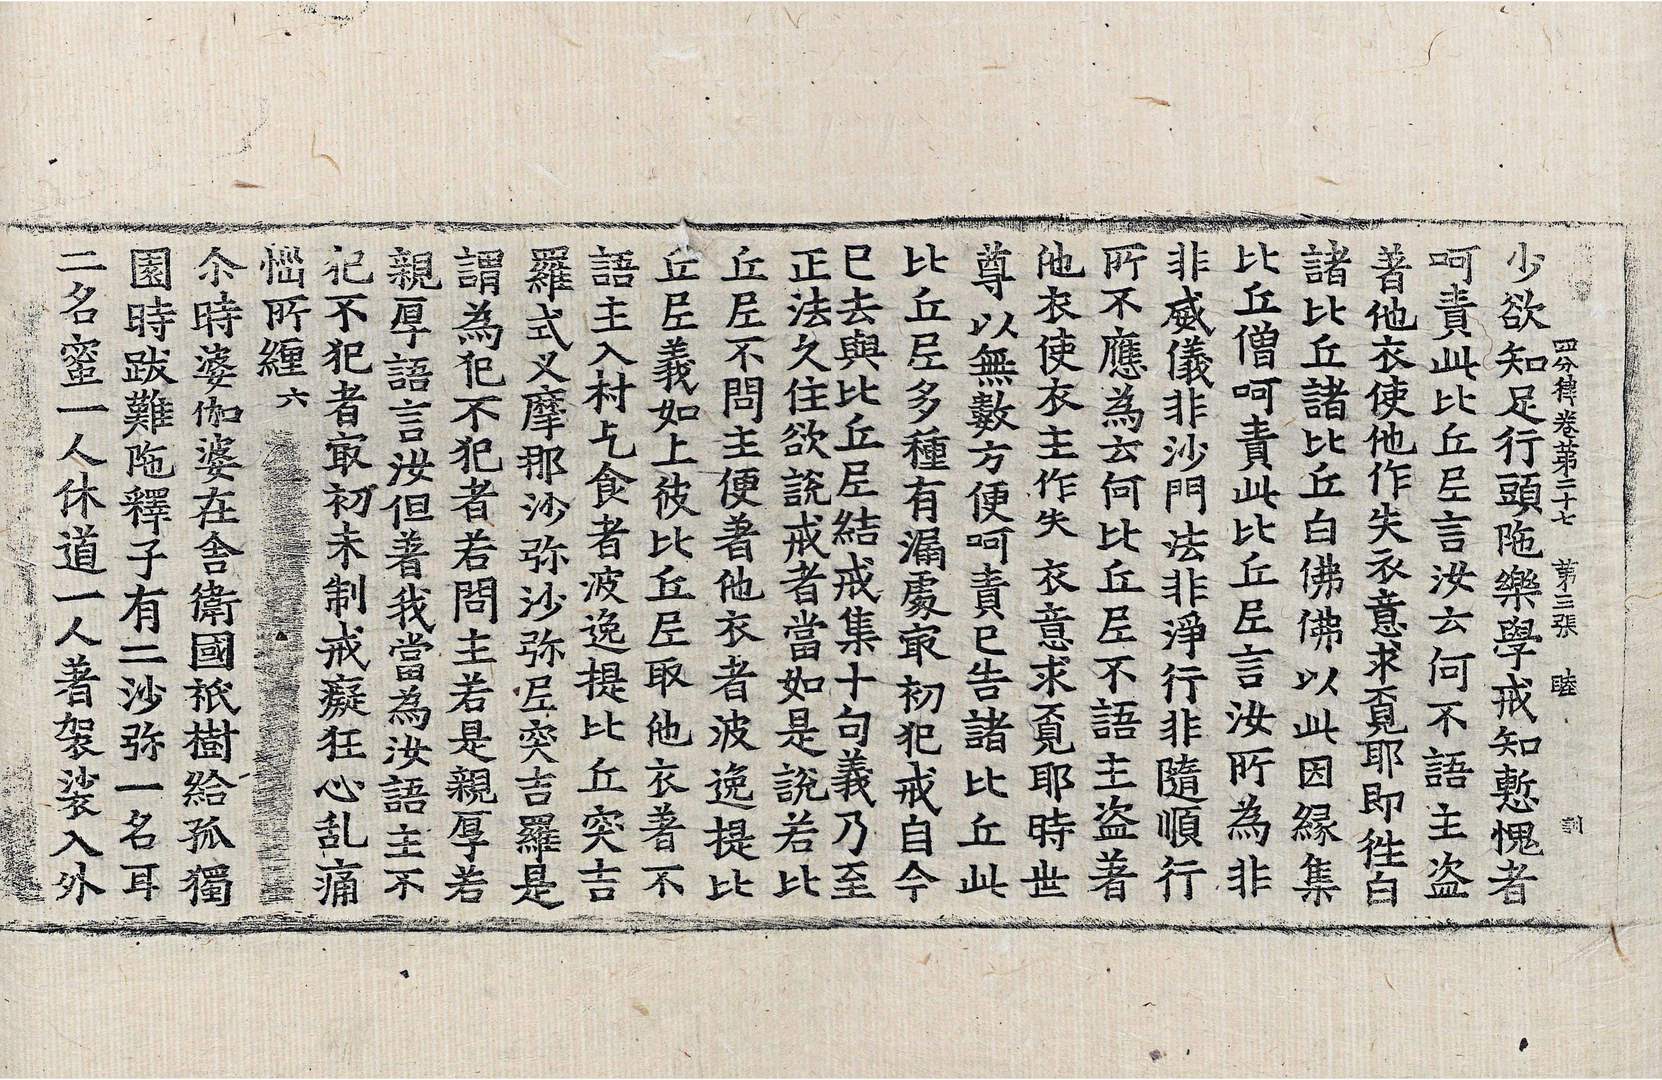 四分律卷苐二十七 第三張 睦
少欲知足行頭陁樂學戒知慙愧者
呵責此比丘尼言汝云何不語主盜
著他衣使他作失衣意求覔耶即徃白
諸比丘諸比丘白佛佛以此因緣集
比丘僧呵責此比丘尼言汝所為非
非威儀非沙門法非淨行非隨順行
所不應為云何比丘尼不語主盜著
他衣使衣主作失衣意求覔耶時世
尊以無數方便呵責已告諸比丘此
比丘尼多種有漏處㝡初犯戒自今
已去與比丘尼結戒集十句義乃至
正法久住欲說戒者當如是說若比
丘尼不問主便著他衣者波逸提比
丘尼義如上彼比丘尼取他衣著不
語主入村乞食者波逸提比丘突吉
羅式叉摩那沙弥沙弥尼突吉羅是
謂為犯不犯者若問主若是親厚若
親厚語言汝但著我當為汝語主不
犯不犯者㝡初未制戒癡狂心乱痛
惱所纏六
尒時婆伽婆在舍衛國祇樹給孤獨
園時跋難陁釋子有二沙弥一名耳
二名蜜一人休道一人著袈裟入外